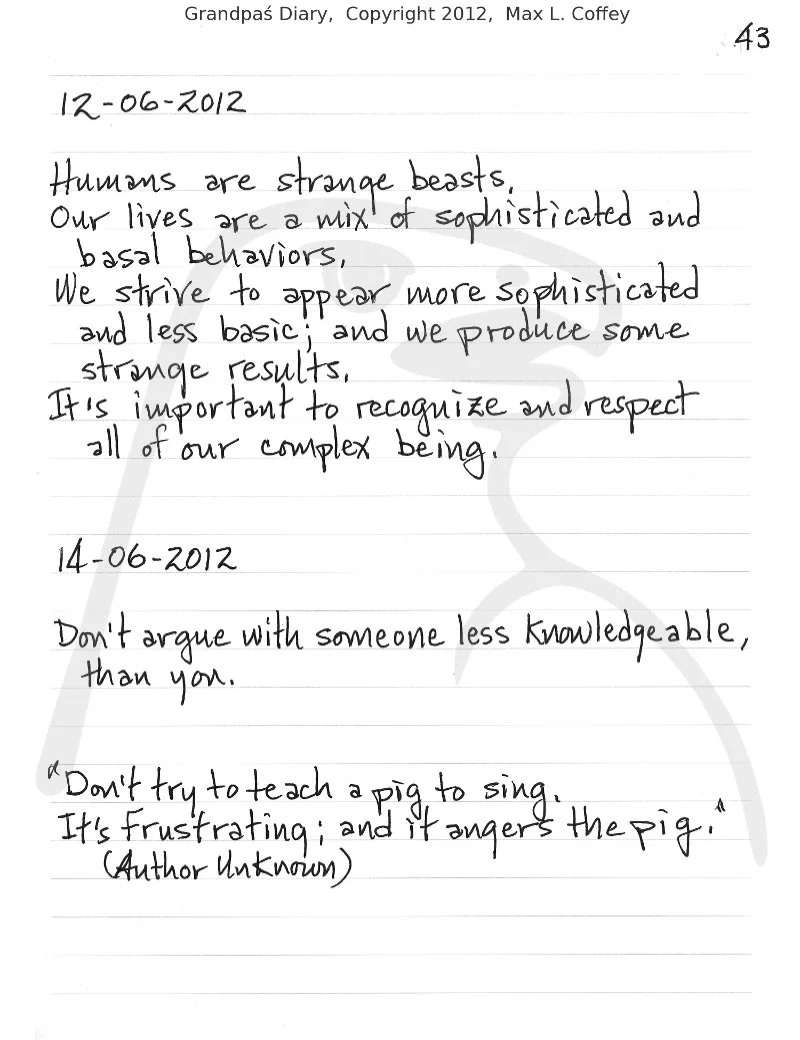 Grandpaś Diary, Copyright 2012, Max L. Coffey
43
12-06-2012
Humans are strange beasts.
Our lives are a mix of sophisticated and
basal behaviors.
We strive to appear more sophisticated
and less basic; and we produce some
strange results.
It's important to recognize and respect
all of our complex being.
14-06-2012
Don't argue with someone less knowledgeable,
than you.
"Don't try to teach a pig to sing.
It's frustrating; and it angers the pig."
(Author Unknown)